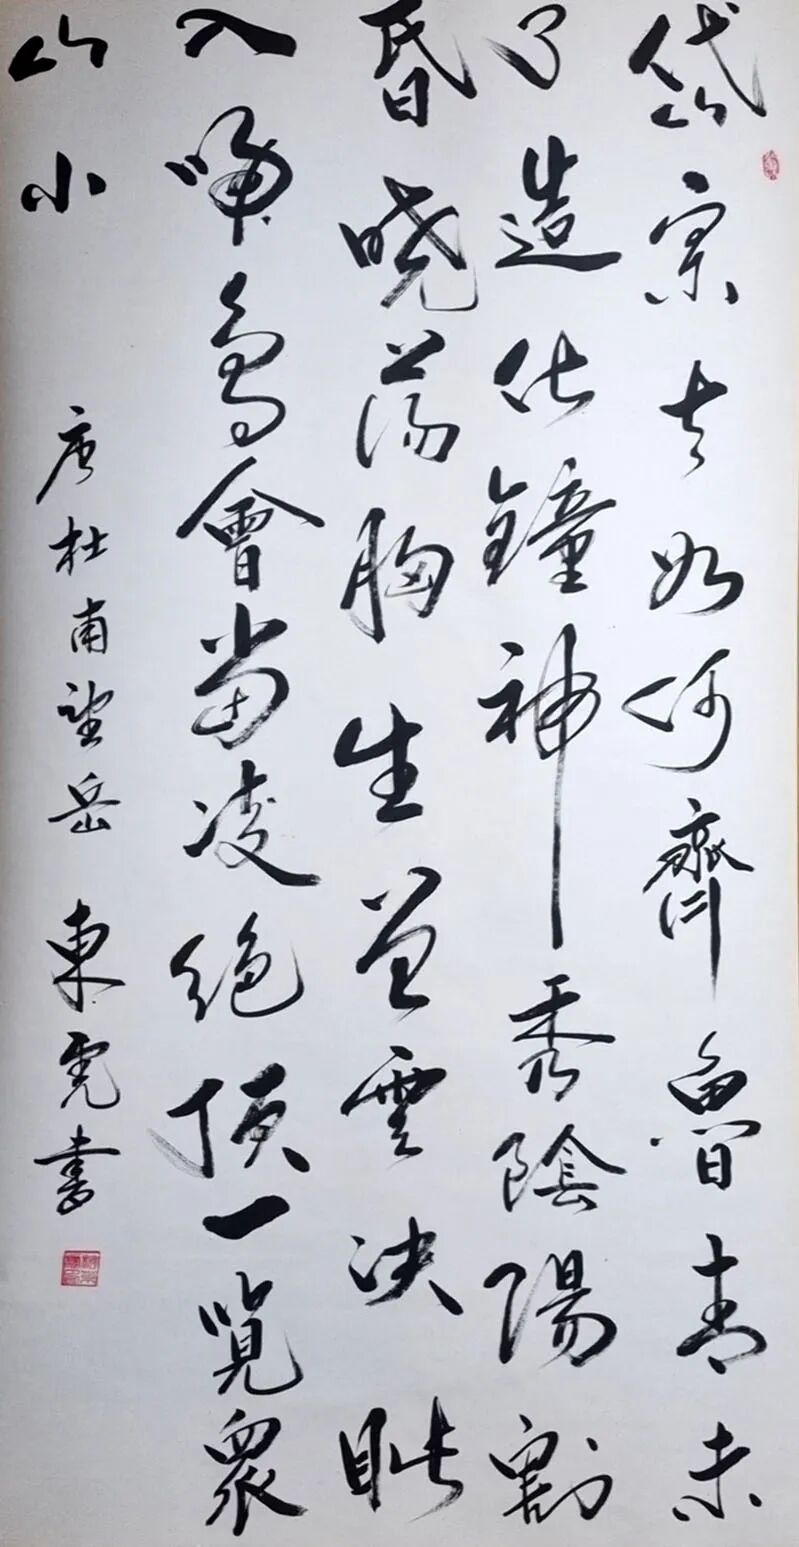 岱宗夫如何齊魯青未
了造化鐘神秀陰陽割
昏曉蕩胸生曾雲決眦
入歸鳥會當凌絕頂一覽衆
山小
唐杜甫望岳 東虎書